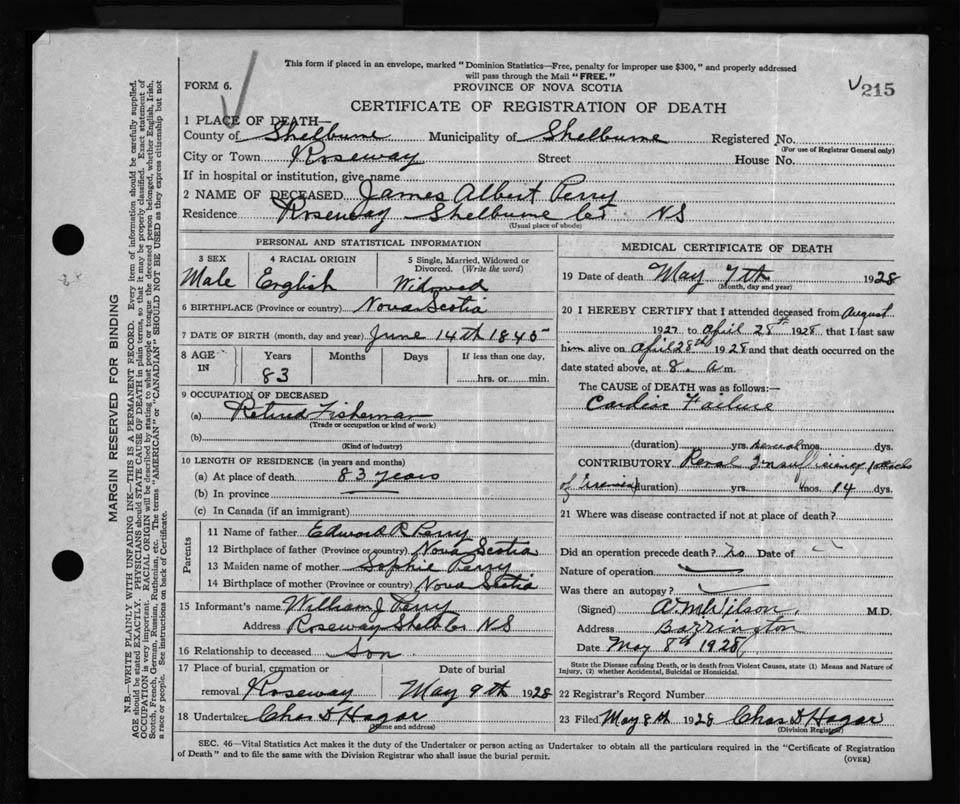 This form if placed in an envelope, marked "Dominion Statistics—Free, penalty for improper use $300," and properly addressed
will pass through the Mail "FREE."
FORM 6.
PROVINCE OF NOVA SCOTIA
√ 215
CERTIFICATE OF REGISTRATION OF DEATH
1 PLACE OF DEATH—
County of Shelburne Municipality of Shelburne Registered No.
(For use of Registrar General only)
City or Town Roseway Street House No.
If in hospital or institution, give name
2 NAME OF DECEASED James Albert Perry
Residence Roseway Shelburne Co NS
(Usual place of abode)
PERSONAL AND STATISTICAL INFORMATION
3 SEX
Male
4 RACIAL ORIGIN
English
5 Single, Married, Widowed or
Divorced. (Write the word)
Widowed
6 BIRTHPLACE (Province or country) Nova Scotia
7 DATE OF BIRTH (month, day and year) June 14th 1845
8 AGE
IN
Years
83
Months
Days
If less than one day,
hrs. or min.
9 OCCUPATION OF DECEASED
(a) Retired Fisherman
(Trade or occupation or kind of work)
(b)
(Kind of industry)
10 LENGTH OF RESIDENCE (in years and months)
(a) At place of death 83 years
(b) In province
(c) In Canada (if an immigrant)
Parents
11 Name of father Edward R Perry
12 Birthplace of father (Province or country) Nova Scotia
13 Maiden name of mother Sophie Perry
14 Birthplace of mother (Province or country) Nova Scotia
15 Informant's name William J Perry
Address Roseway Shelb Co NS
16 Relationship to deceased Son
17 Place of burial, cremation or
removal Roseway
Date of burial
May 9th 1928
18 Undertaker Chas D Hagar
(Name and address)
MEDICAL CERTIFICATE OF DEATH
19 Date of death May 7th 1928
(Month, day and year)
20 I HEREBY CERTIFY that I attended deceased from August
1927 to April 28th 1928 that I last saw
him alive on April 28th 1928 and that death occurred on the
date stated above, at 8 a m.
The CAUSE OF DEATH was as follows:—
Cardiac Failure
(duration) yrs. several mos. dys.
CONTRIBUTORY Renal Insufficiency attacks
of Uremia (duration) yrs. mos. 14 dys.
21 Where was disease contracted if not at place of death?
Did an operation precede death? no Date of
Nature of operation
Was there an autopsy?
(Signed) A M Wilson M.D.
Address Barrington
Date May 8th 1928
State the Disease causing Death, or in death from Violent Causes, state (1) Means and Nature of
Injury, (2) whether Accidental, Suicidal or Homicidal.
22 Registrar's Record Number
23 Filed May 8th 1928 Chas D Hagar
(Division Registrar)
SEC. 46—Vital Statistics Act makes it the duty of the Undertaker or person acting as Undertaker to obtain all the particulars required in the "Certificate of Registration
of Death" and to file the same with the Division Registrar who shall issue the burial permit.
(OVER)
MARGIN RESERVED FOR BINDING
N.B.—WRITE PLAINLY WITH UNFADING INK—THIS IS A PERMANENT RECORD. Every item of information should be carefully supplied.
AGE should be stated EXACTLY. PHYSICIANS should STATE CAUSE OF DEATH in plain terms, so that it may be properly classified. Exact statement of
OCCUPATION is very important. RACIAL ORIGIN will be described by stating to what people or tongue the deceased person belonged, whether English, Irish,
Scotch, French, German, Russian, Ruthenian, etc. The terms "AMERICAN" or "CANADIAN" SHOULD NOT BE USED as they express citizenship but not
a race or people. See instructions on back of Certificate.